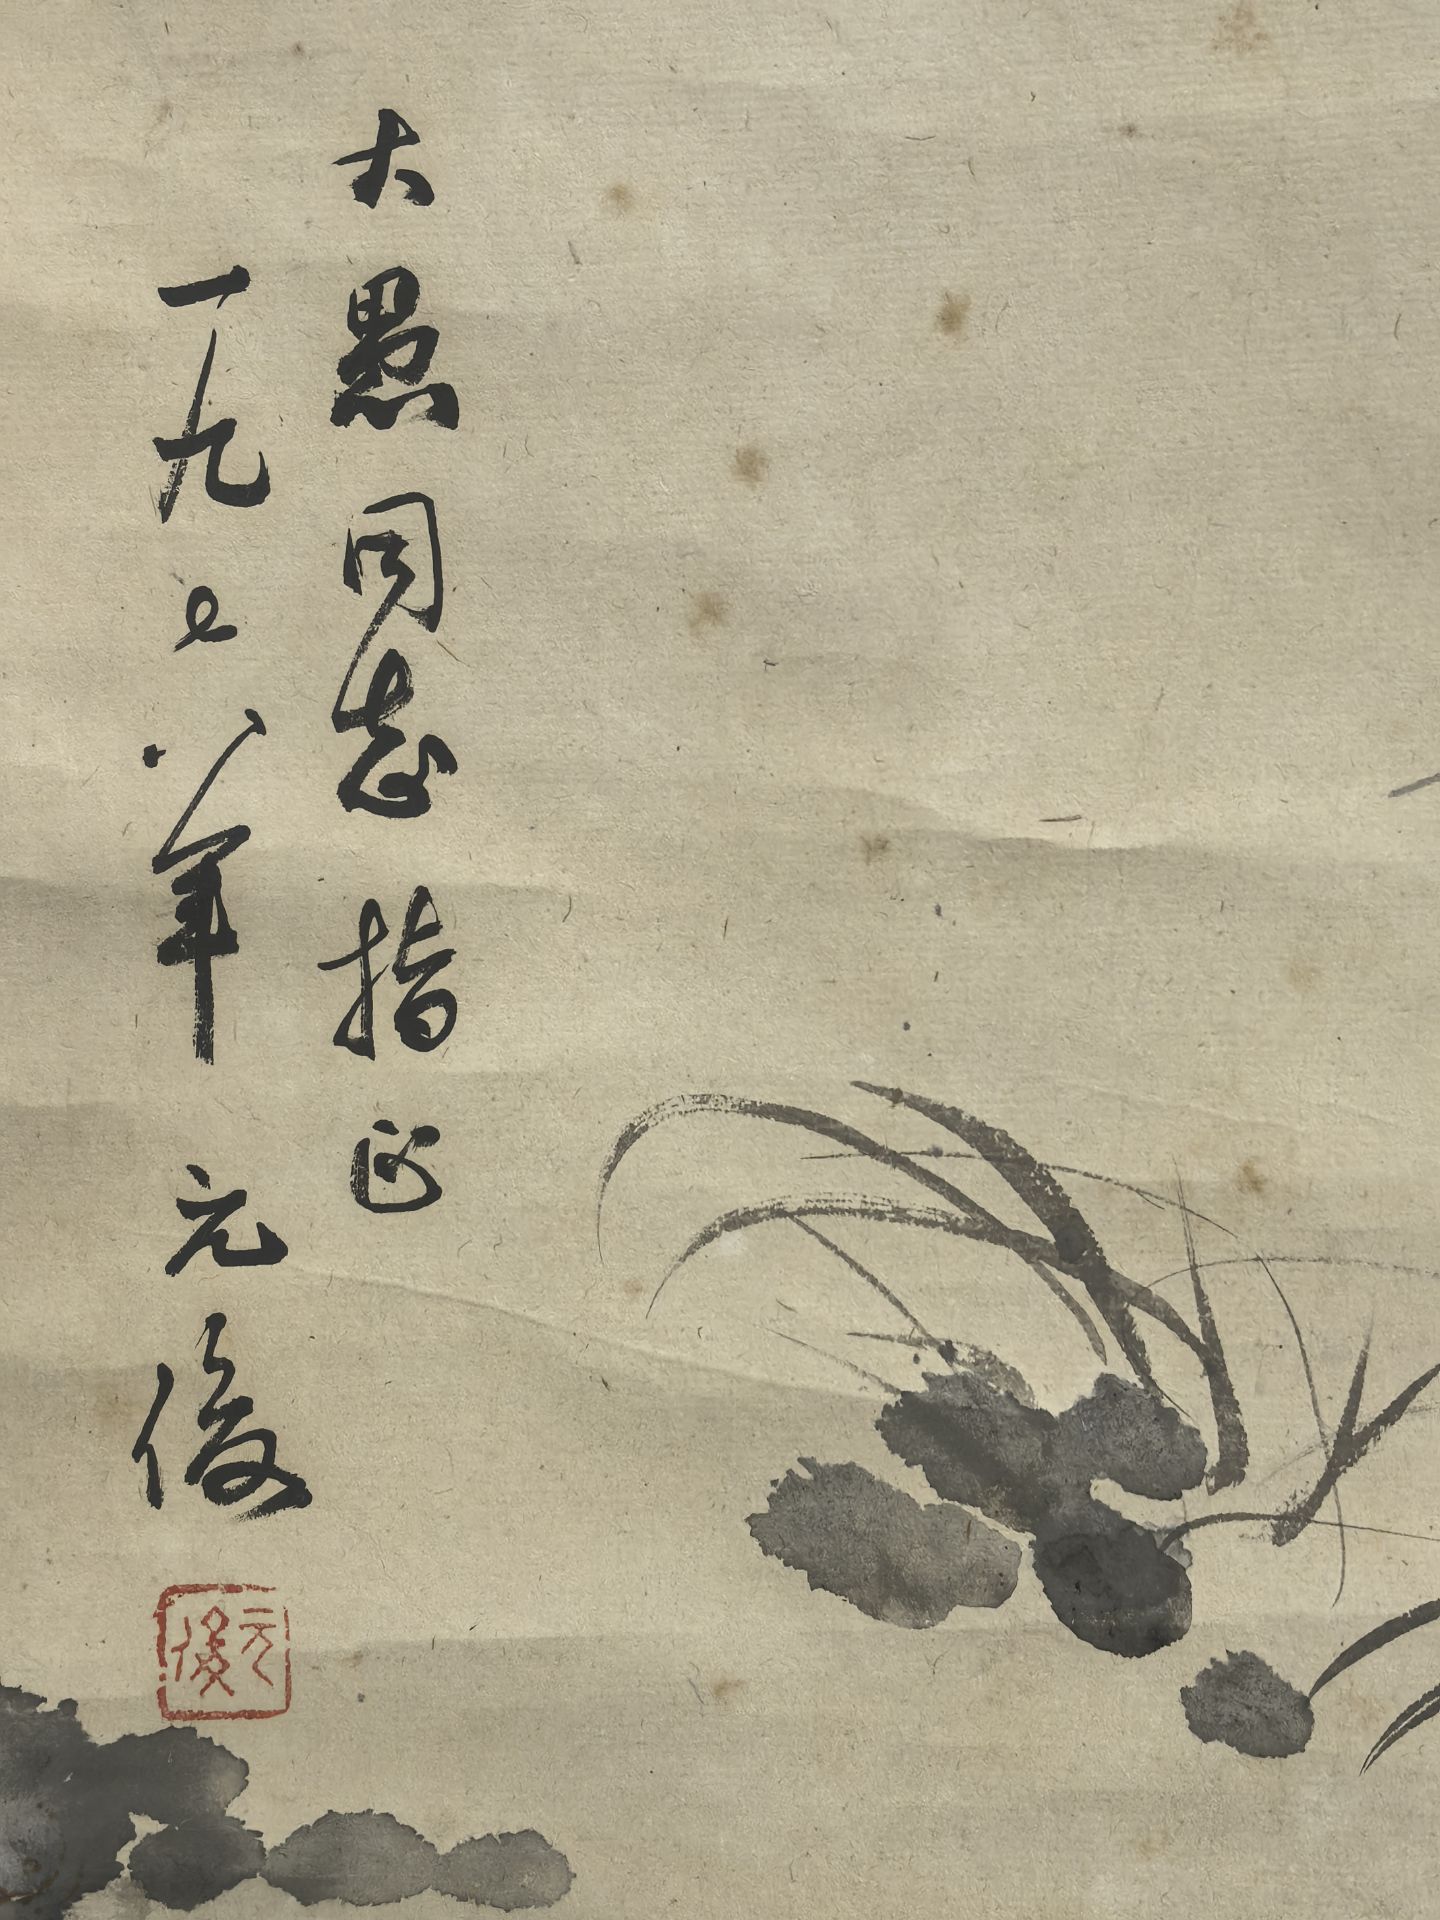 大愚同志指正
一九七八年 元俊
元俊